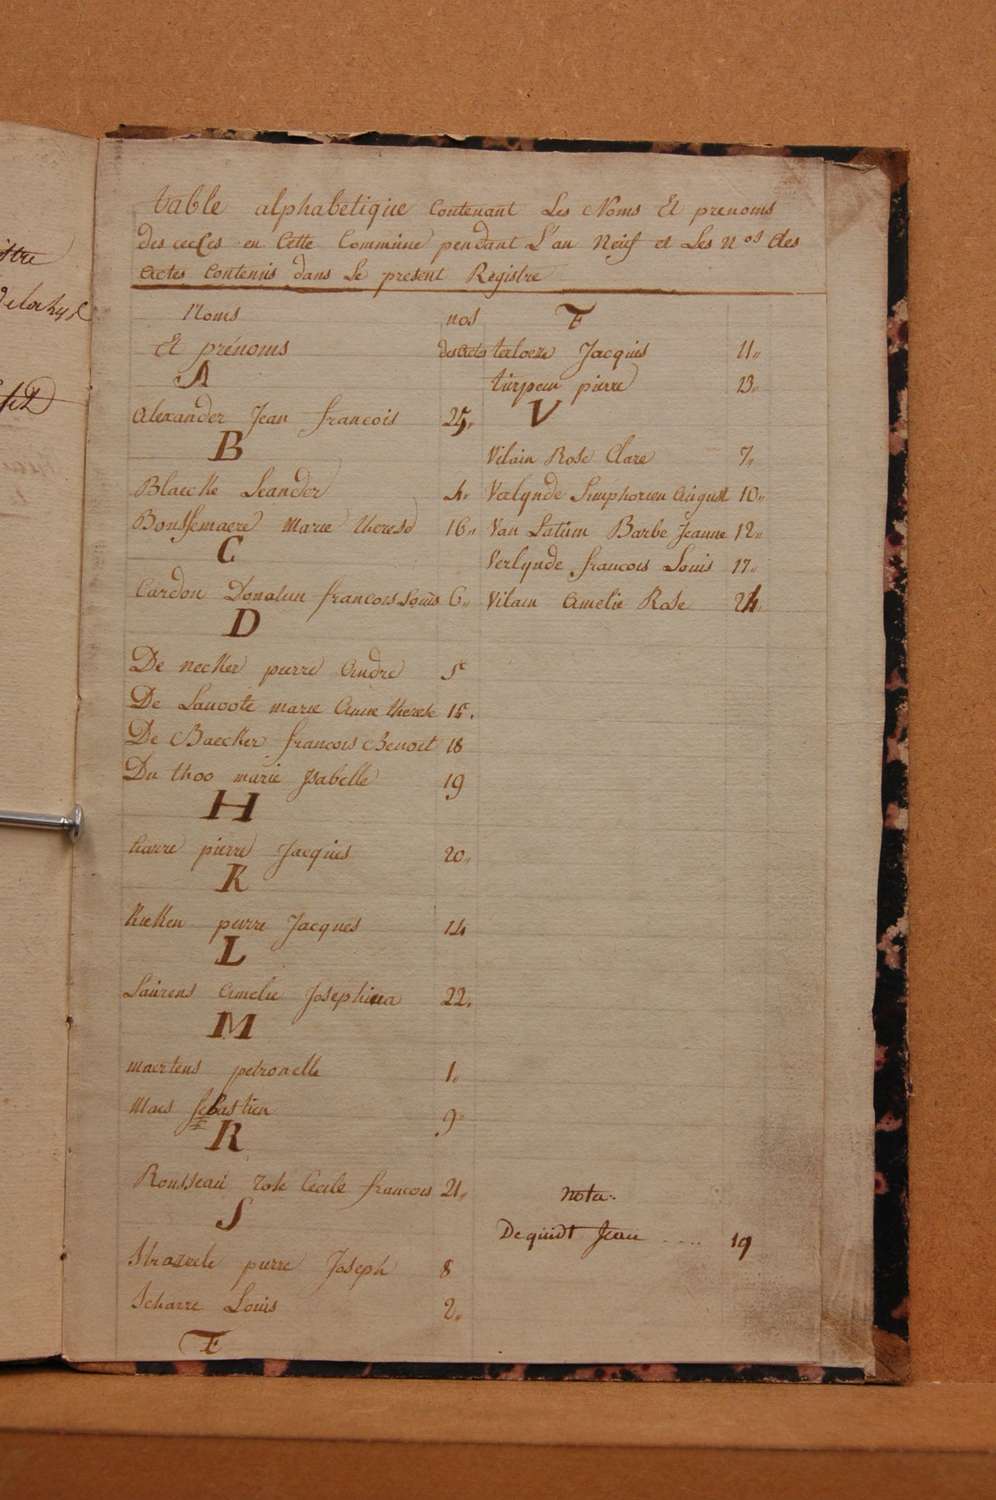 table alphabetique Contenant Les Noms Et prenoms
des cecles en Cette Commune pendant L'an Neuf et Les Nos des
actes contenus dans Le present Registre
Noms
Et prénoms
nos
des actes
A
alexander Jean francois 25
B
Blaecke Leander 4
Bonssemaere Marie therese 16
C
Cardon Donatun francois Louis 6
D
De necker pierre andre 5
De Lanoote marie anne therese 15
De Baecker francois Benoit 18
Du thoo marie Isabelle 19
H
harre pierre Jacques 20
K
Kieken pierre Jacques 14
L
Laurens amelie Josephina 22
M
maertens petronelle 1
Maes sebastien 9
R
Rousseau rose Cecile francois 21
S
Strazeele pierre Joseph 8
Scharre Louis 2
T
T
terloere Jacques 11
turpeur pierre 23
V
Vilain Rose Clare 7
Verlynde Simphorien August 10
Van Latum Barbe Jeanne 12
Verlynde francois Louis 17
Vilain Amelie Rose 24
nota
De quidt Jean .... 19